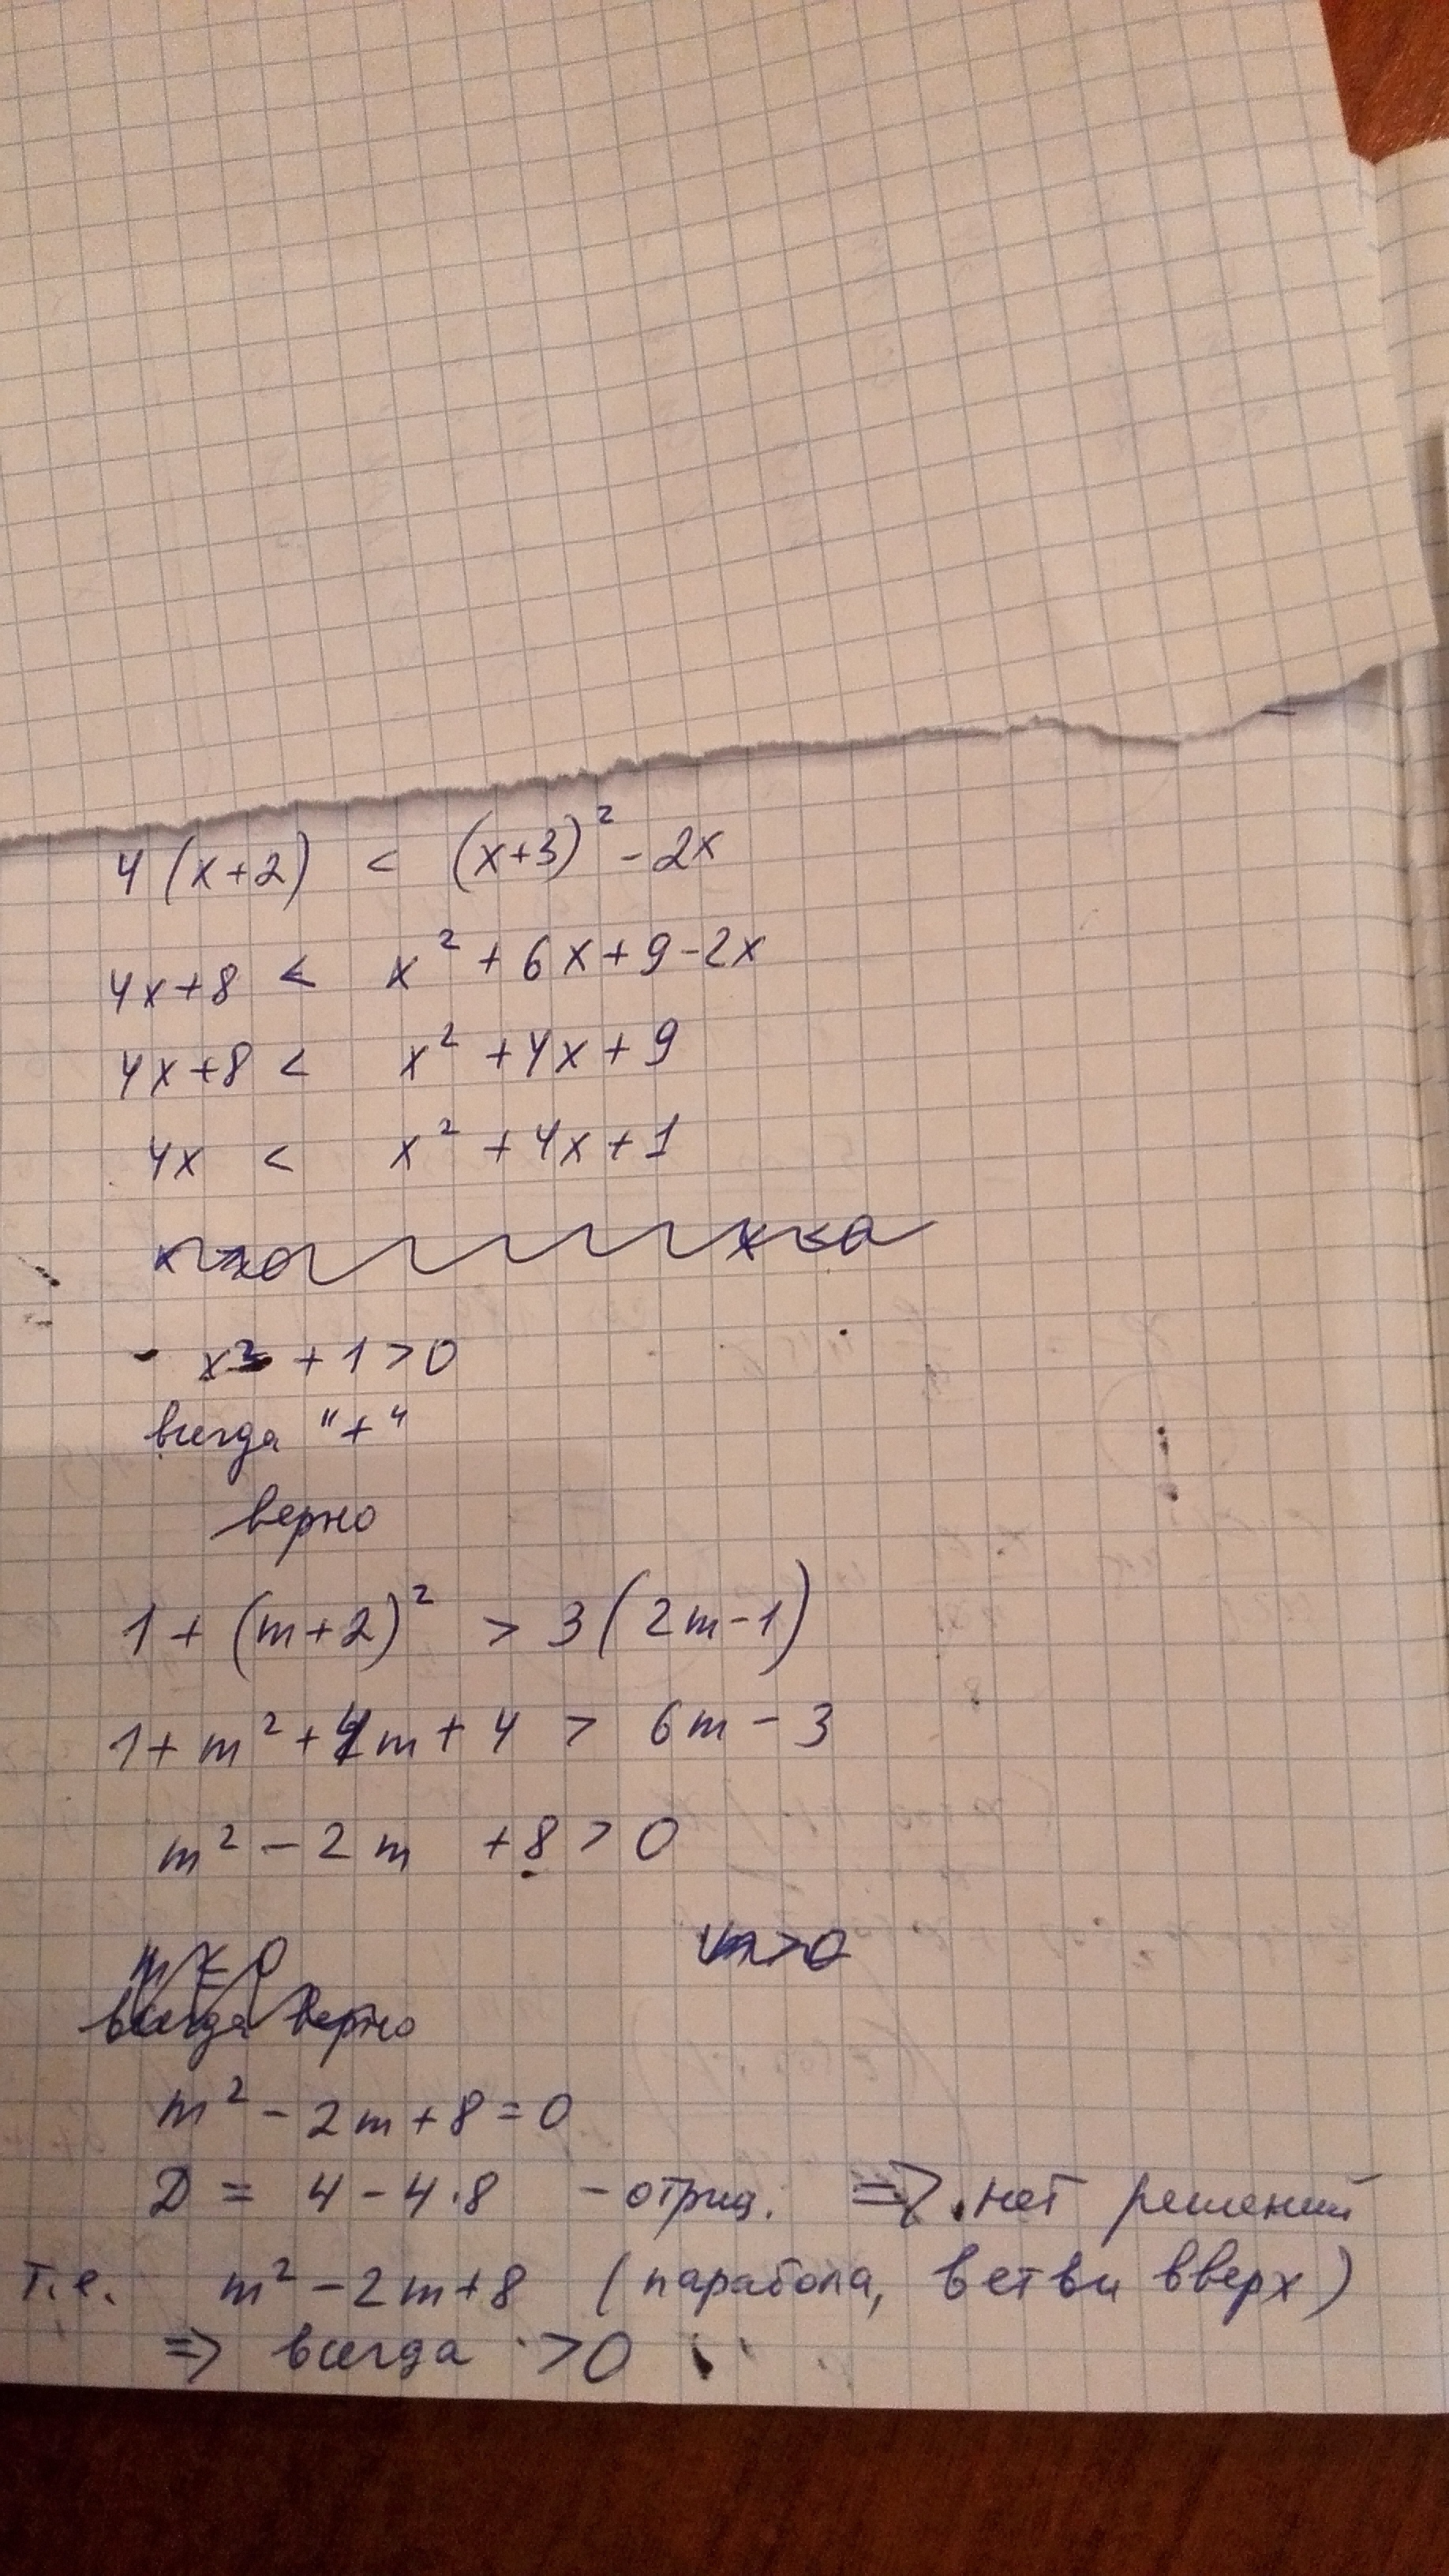 4(x+2) < (x+3)² - 2x
4x+8 < x² + 6x + 9 - 2x
4x+8 < x² + 4x + 9
4x < x² + 4x + 1
x² + 1 > 0
всегда "+"
верно
1 + (m+2)² > 3(2m-1)
1 + m² + 4m + 4 > 6m - 3
m² - 2m + 8 > 0
m < 0 m > 0
всегда верно
m² - 2m + 8 = 0
D = 4 - 4·8 - отриц. => нет решений
т.е. m² - 2m + 8 (парабола, ветви вверх)
=> всегда > 0